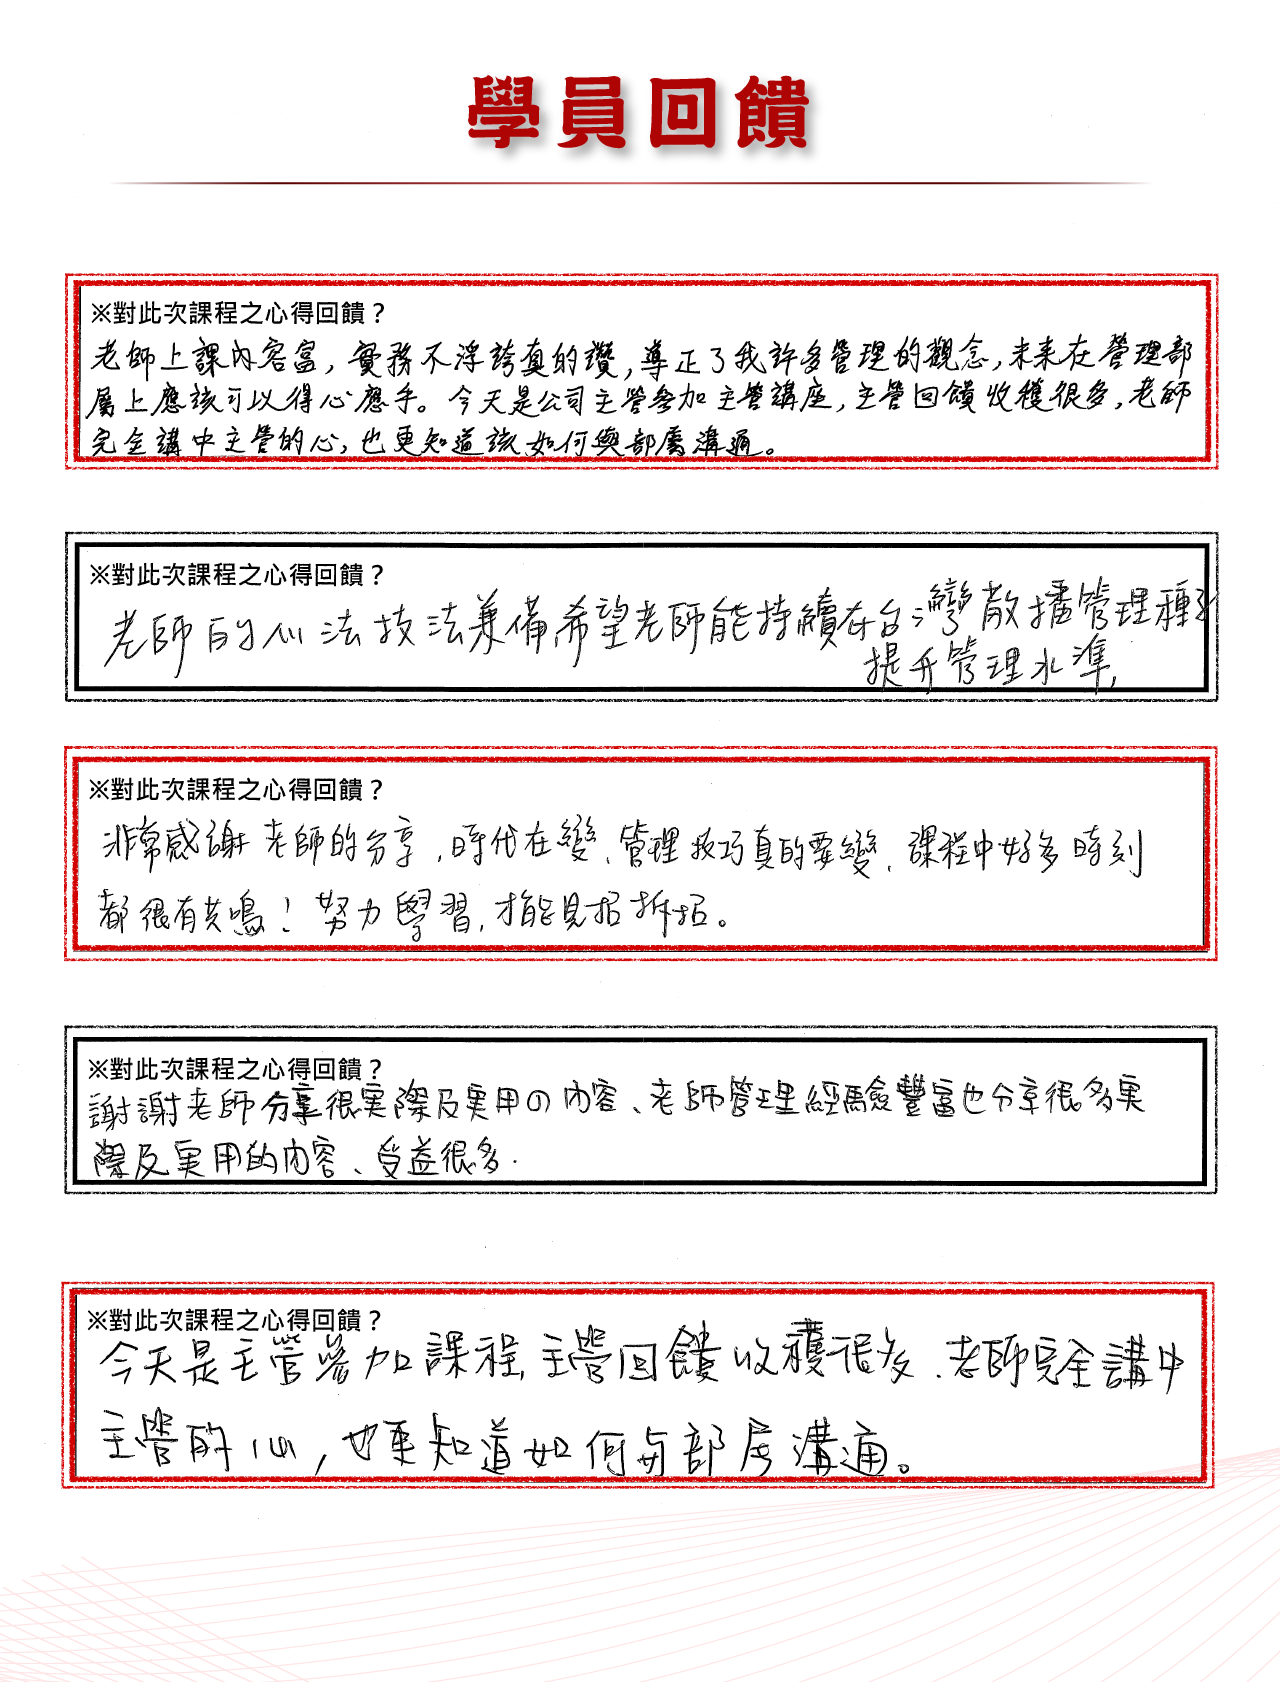 學員回饋
※對此次課程之心得回饋？
老師上課內容富，實務不浮誇真的讚，導正了我許多管理的觀念，未來在管理部
屬上應該可以得心應手。今天是公司主管參加主管講座，主管回饋收穫很多，老師
完全講中主管的心，也更知道該如何與部屬溝通。
※對此次課程之心得回饋？
老師的心法技法兼備，希望老師能持續在台灣散播管理種子
提升管理水準，
※對此次課程之心得回饋？
非常感謝老師的分享，時代在變、管理技巧真的要變、課程中好多時刻
都很有共鳴！努力學習，才能見招拆招。
※對此次課程之心得回饋？
謝謝老師分享很実際及実用の內容、老師管理經驗豐富也分享很多実
際及実用的內容、受益很多.
※對此次課程之心得回饋？
今天是主管參加課程，主管回饋收穫很多、老師完全講中
主管的心，也更知道如何与部居溝通。